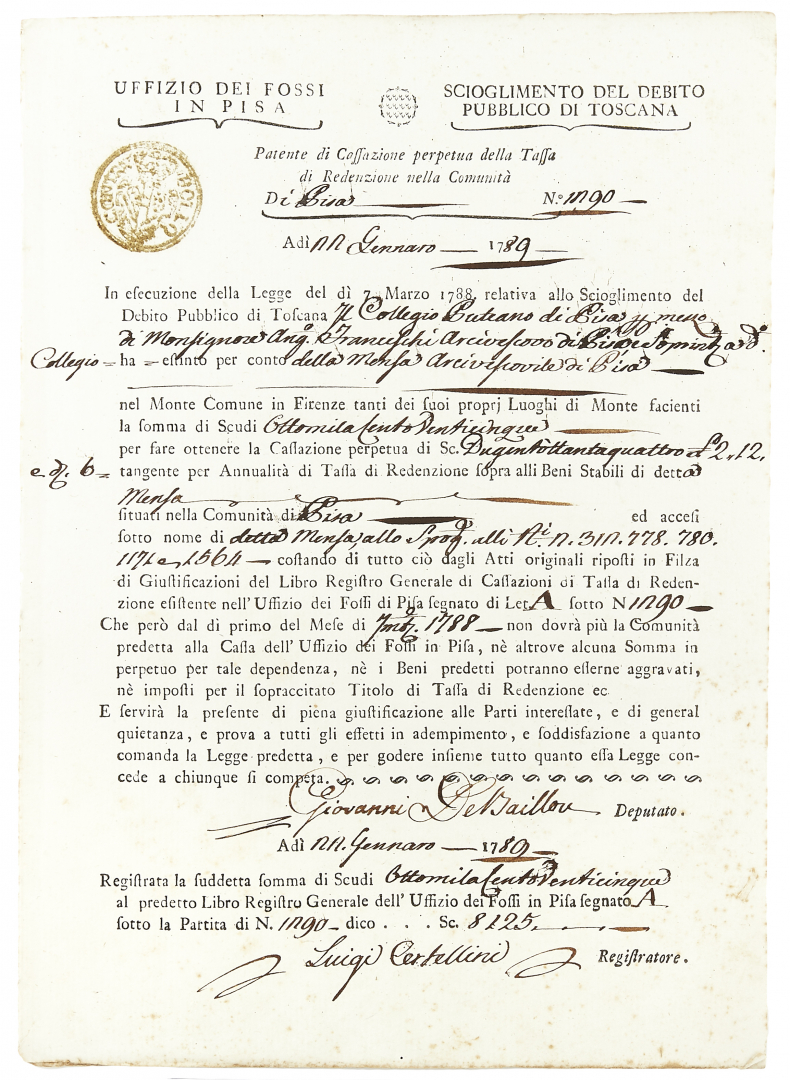 UFFIZIO DEI FOSSI
IN PISA
SCIOGLIMENTO DEL DEBITO
PUBBLICO DI TOSCANA
Patente di Cassazione perpetua della Tassa
di Redenzione nella Comunità
Di Pisa N.º 1290
Adì 22 Gennaro 1789
In esecuzione della Legge del dì 7 Marzo 1788 relativa allo Scioglimento del
Debito Pubblico di Toscana Il Collegio Puteano di Pisa p mezzo
di Monsignore Ang.º Franceschi Arcivescovo di Pisa e
Collegio = ha = estinto per conto della Mensa Arcivescovile di Pisa
nel Monte Comune in Firenze tanti dei suoi proprj Luoghi di Monte facienti
la somma di Scudi Ottomila Cento Venticinque
per fare ottenere la Cassazione perpetua di Sc. Dugentottantaquattro £ 2.12.
e d. 6 = tangente per Annualità di Tassa di Redenzione sopra alli Beni Stabili di detta
Mensa
situati nella Comunità di Pisa ed accesi
sotto nome di detta Mensa, allo alli N.i 2. 312. 778. 780.
1171 e 1564 costando di tutto ciò dagli Atti originali riposti in Filza
di Giustificazioni del Libro Registro Generale di Cassazioni di Tassa di Reden-
zione esistente nell'Uffizio dei Fossi di Pisa segnato di Let. A sotto N 1290
Che però dal dì primo del Mese di 7mbr. 1788 non dovrà più la Comunità
predetta alla Cassa dell'Uffizio dei Fossi in Pisa, nè altrove alcuna Somma in
perpetuo per tale dependenza, nè i Beni predetti potranno esserne aggravati,
nè imposti per il sopraccitato Titolo di Tassa di Redenzione ec.
E servirà la presente di piena giustificazione alle Parti interessate, e di general
quietanza, e prova a tutti gli effetti in adempimento, e soddisfazione a quanto
comanda la Legge predetta, e per godere insieme tutto quanto essa Legge con-
cede a chiunque si competa.
Giovanni DeBaillou Deputato.
Adì 22. Gennaro 1789
Registrata la suddetta somma di Scudi Ottomila Cento Venticinque
al predetto Libro Registro Generale dell'Uffizio dei Fossi in Pisa segnato A
sotto la Partita di N. 1290 dico . . . Sc. 8125.
Luigi Certellini Registratore.